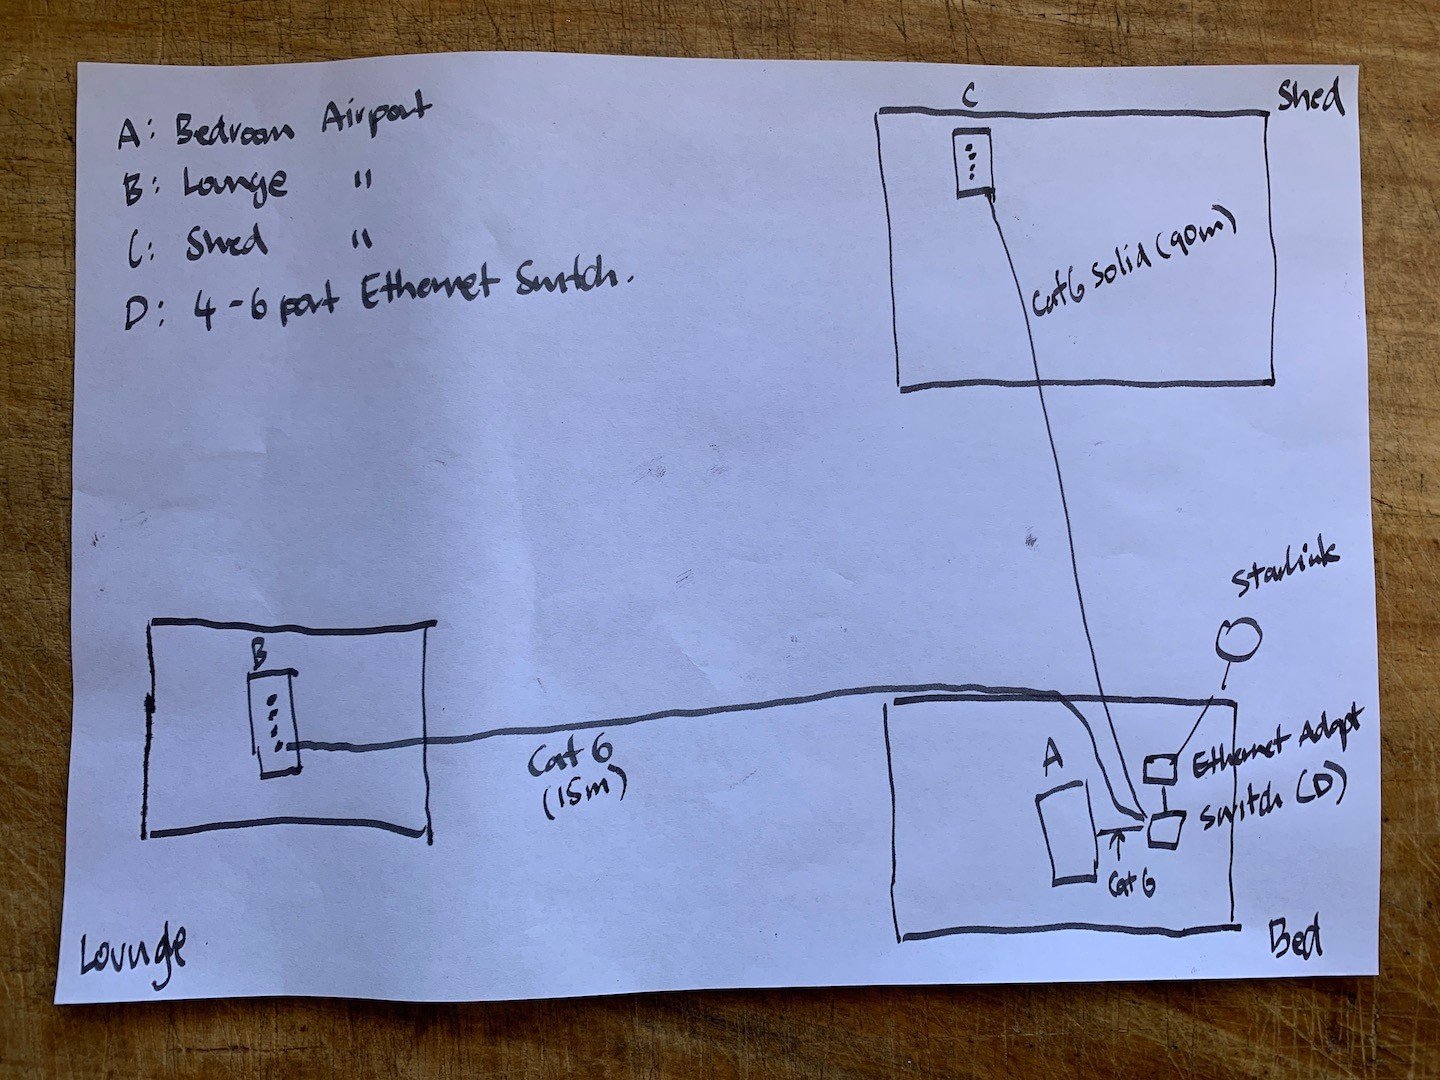 A: Bedroom Airport
B: Lounge "
C: Shed "
D: 4-6 port Ethernet Switch.
C
Shed
Cat6 Solid (90m)
Starlink
B
Cat 6
(15m)
A
Ethernet Adapt
Switch (D)
Cat 6
Lounge
Bed